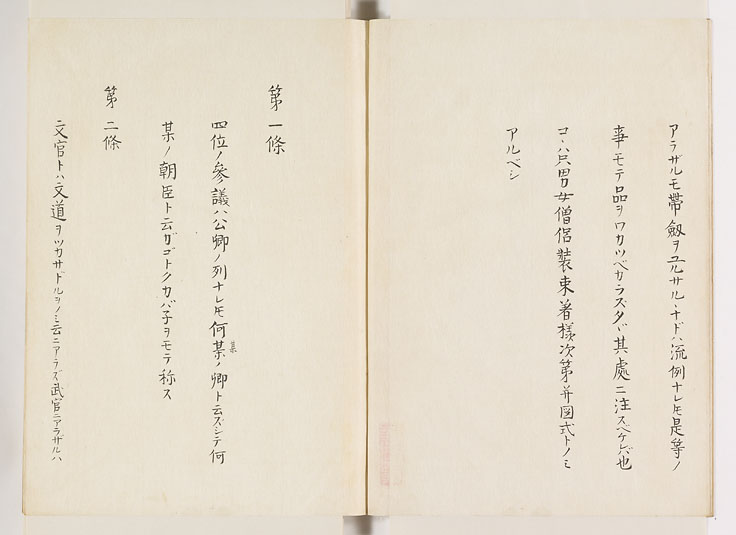 アラザルモ帶劔ヲユルサル、ナドハ流例ナレ𪜈是等ノ
事モテ品ヲワカツベカラズタヾ其處ニ注スベケレバ也
コヽハ只男女僧侶裝束著樣次第并圖式トノミ
アルベシ
第一條
四位ノ參議ハ公卿ノ列ナレ𪜈何某ノ卿ト云ズシテ何
某
某ノ朝臣ト云ガゴトクカバ子ヲモテ称ス
第二條
文官トハ文道ヲツカサドルヲノミ云ニアラズ武官ニアラザルハ